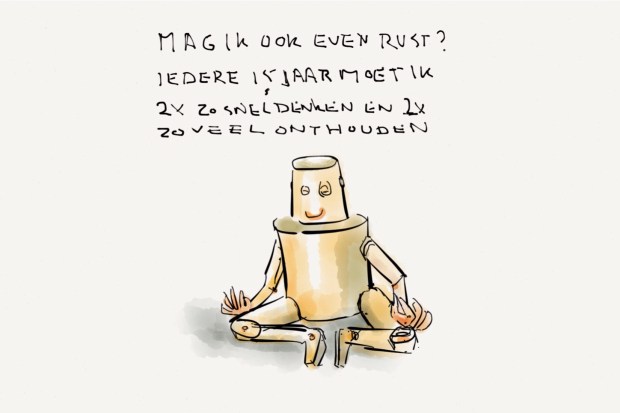 MAG IK OOK EVEN RUST?
IEDERE 1,5 JAAR MOET IK
2X ZO SNEL DENKEN EN 2X
ZO VEEL ONTHOUDEN